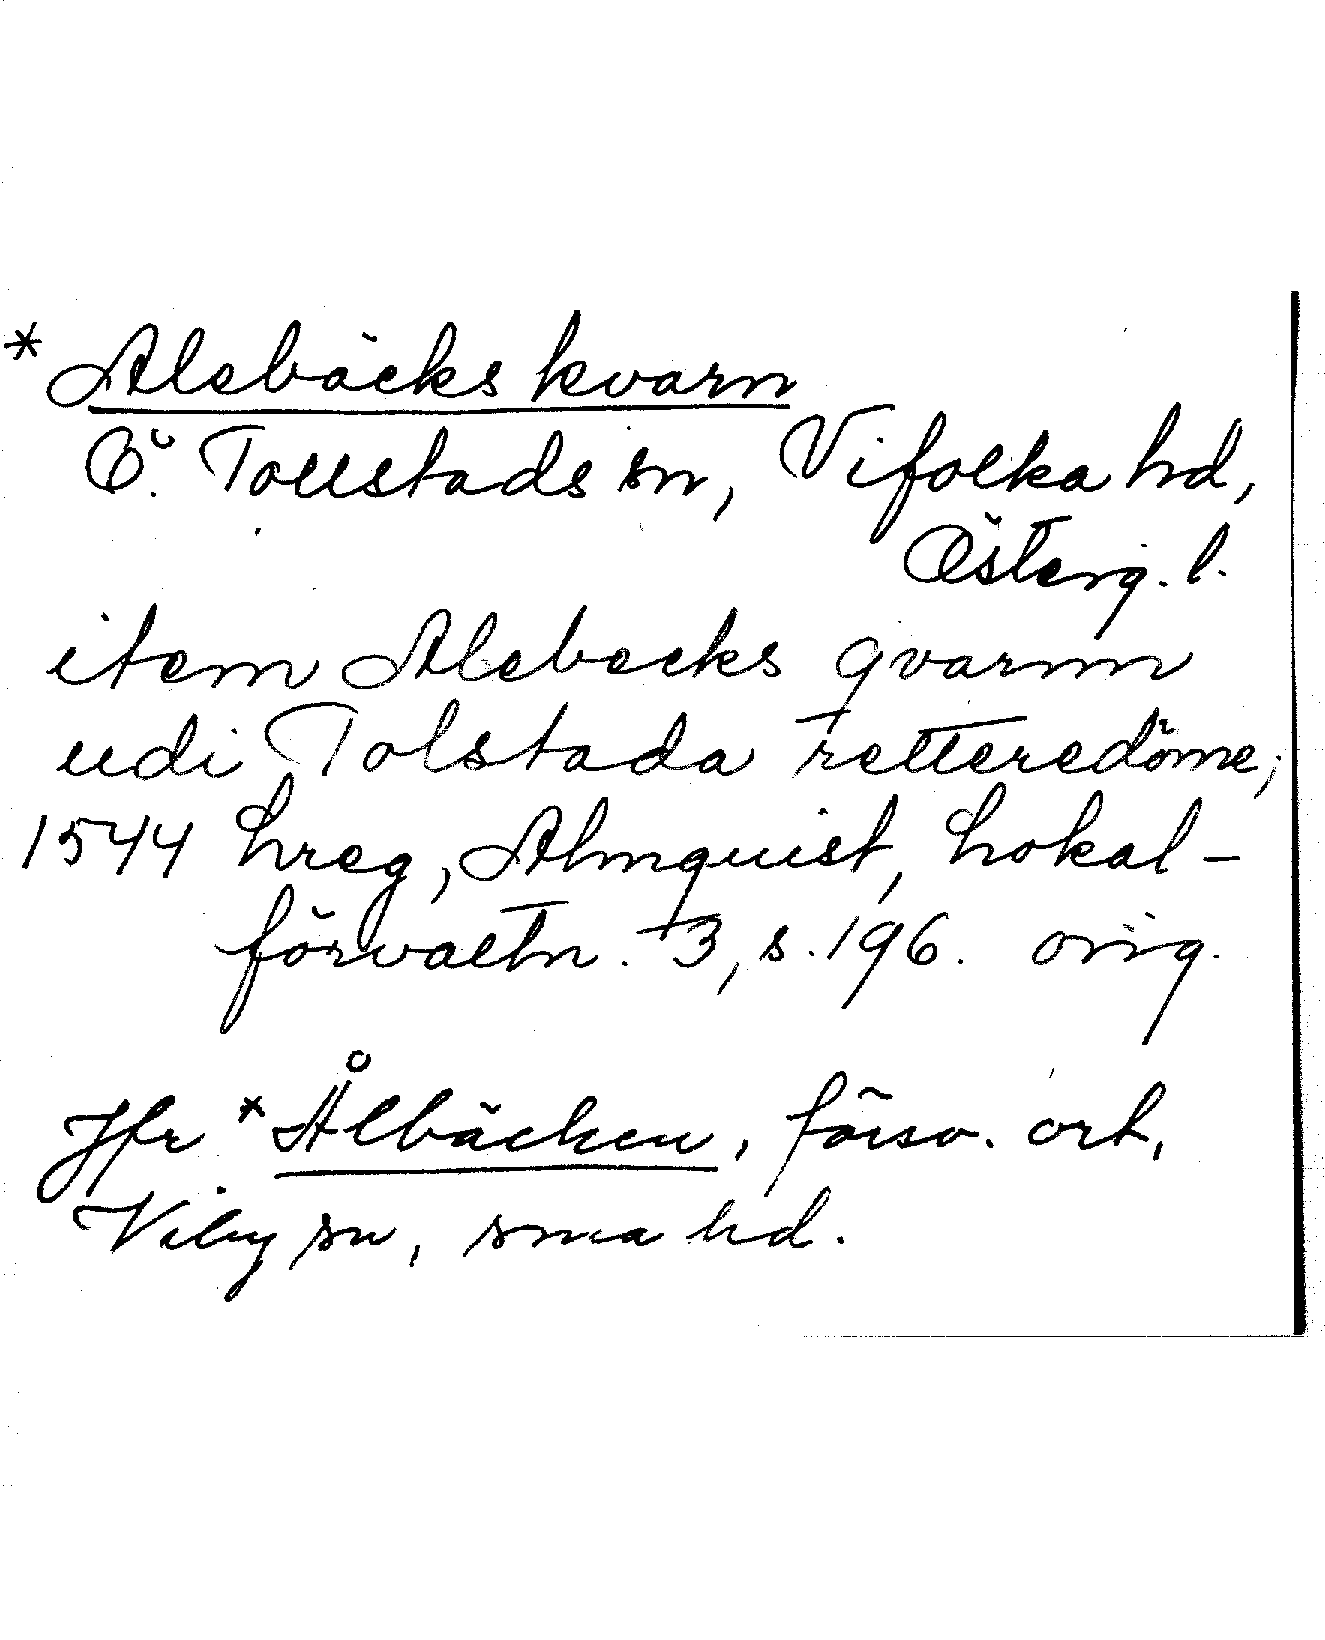 * Alebäcks kvarn
Ö. Tollstads sn, Vifolka hd,
Österg. l.
item Alebecks qvarnn
udi Tolstada retteredöme;
1544 Lreg, Almquist, Lokal-
förvaltn. 3, s. 196. orig.
Jfr *Ålbäcken, försv. ort,
Viby sn, sma hd.